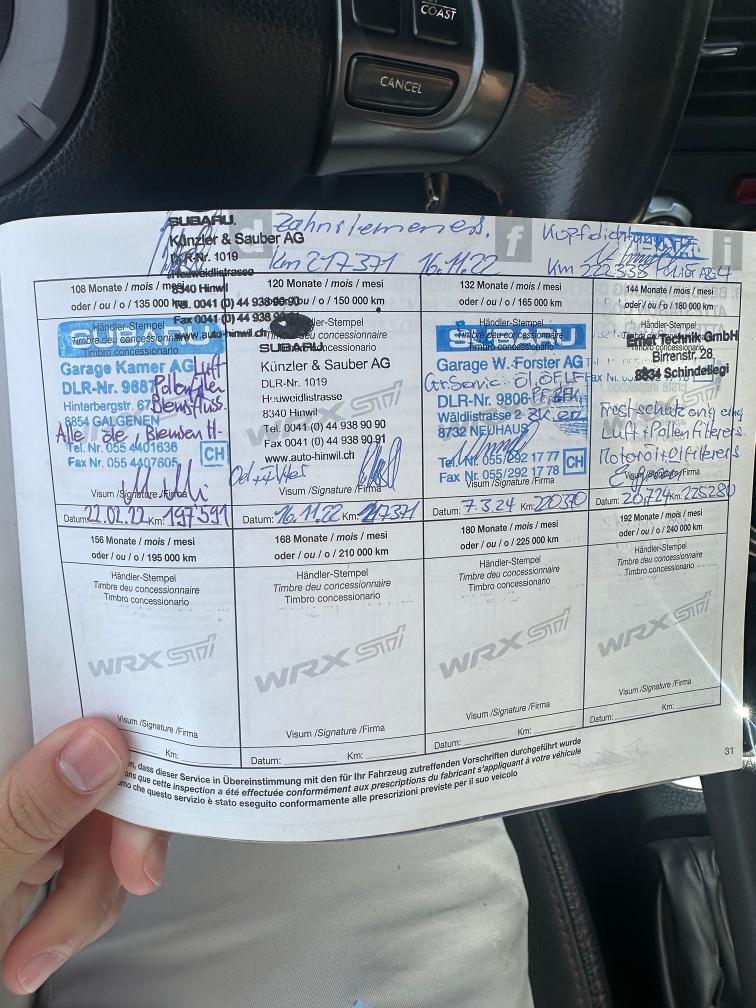 COAST
CANCEL
SUBARU
Künzler & Sauber AG
DLR-Nr. 1019
Heuweidlistrasse
8340 Hinwil
Tel. 0041 (0) 44 938 90 90
Fax 0041 (0) 44 938 90 91
www.auto-hinwil.ch
Zahnriemen ers.
Km 217371 16.11.22
f
i
Kopfdichtung
Km 222338
108 Monate / mois / mesi
oder / ou / o / 135 000 km
Händler-Stempel
Timbre deu concessionnaire
Timbro concessionario
SUBARU
Garage Kamer AG
DLR-Nr. 9687
Hinterbergstr. 67
8854 GALGENEN
Tel. Nr. 055 4401636
Fax Nr. 055 4407605
CH
Luft
Pollenfilter
Bremsflüss.
Alle öle, Bremsen H-
Visum /Signature /Firma
Datum: 22.02.22 Km: 197'591
120 Monate / mois / mesi
oder / ou / o / 150 000 km
Händler-Stempel
SUBARU
Künzler & Sauber AG
DLR-Nr. 1019
Heuweidlistrasse
8340 Hinwil
Tel. 0041 (0) 44 938 90 90
Fax 0041 (0) 44 938 90 91
www.auto-hinwil.ch
Oel + Filter
Visum /Signature /Firma
Datum: 16.11.22 Km: 217371
132 Monate / mois / mesi
oder / ou / o / 165 000 km
Händler-Stempel
Timbre deu concessionnaire
Timbro concessionario
SUBARU
Garage W. Forster AG
Gr. Service Öl, ÖF, LF
DLR-Nr. 9806 PF, BFl.
Wäldlistrasse 2
8732 NEUHAUS
Tel.-Nr. 055/292 17 77
Fax Nr. 055/292 17 78
CH
Visum /Signature /Firma
Datum: 7.3.24 Km: 220370
144 Monate / mois / mesi
oder / ou / o / 180 000 km
Händler-Stempel
Ernst Technik GmbH
Birrenstr. 28
8834 Schindellegi
Frostschutz ern.
Luft + Pollenfilter ers.
Motoröl + Ölfilter ers.
Visum /Signature /Firma
Datum: 20.7.24 Km: 225280
156 Monate / mois / mesi
oder / ou / o / 195 000 km
Händler-Stempel
Timbre deu concessionnaire
Timbro concessionario
WRX STI
Visum /Signature /Firma
Km:
168 Monate / mois / mesi
oder / ou / o / 210 000 km
Händler-Stempel
Timbre deu concessionnaire
Timbro concessionario
WRX STI
Visum /Signature /Firma
Datum: Km:
180 Monate / mois / mesi
oder / ou / o / 225 000 km
Händler-Stempel
Timbre deu concessionnaire
Timbro concessionario
WRX STI
Visum /Signature /Firma
Datum: Km:
192 Monate / mois / mesi
oder / ou / o / 240 000 km
Händler-Stempel
Timbre deu concessionnaire
Timbro concessionario
WRX STI
Visum /Signature /Firma
Datum: Km:
dass dieser Service in Übereinstimmung mit den für Ihr Fahrzeug zutreffenden Vorschriften durchgeführt wurde
que cette inspection a été effectuée conformément aux prescriptions du fabricant s'appliquant à votre véhicule
che questo servizio è stato eseguito conformamente alle prescrizioni previste per il suo veicolo
31